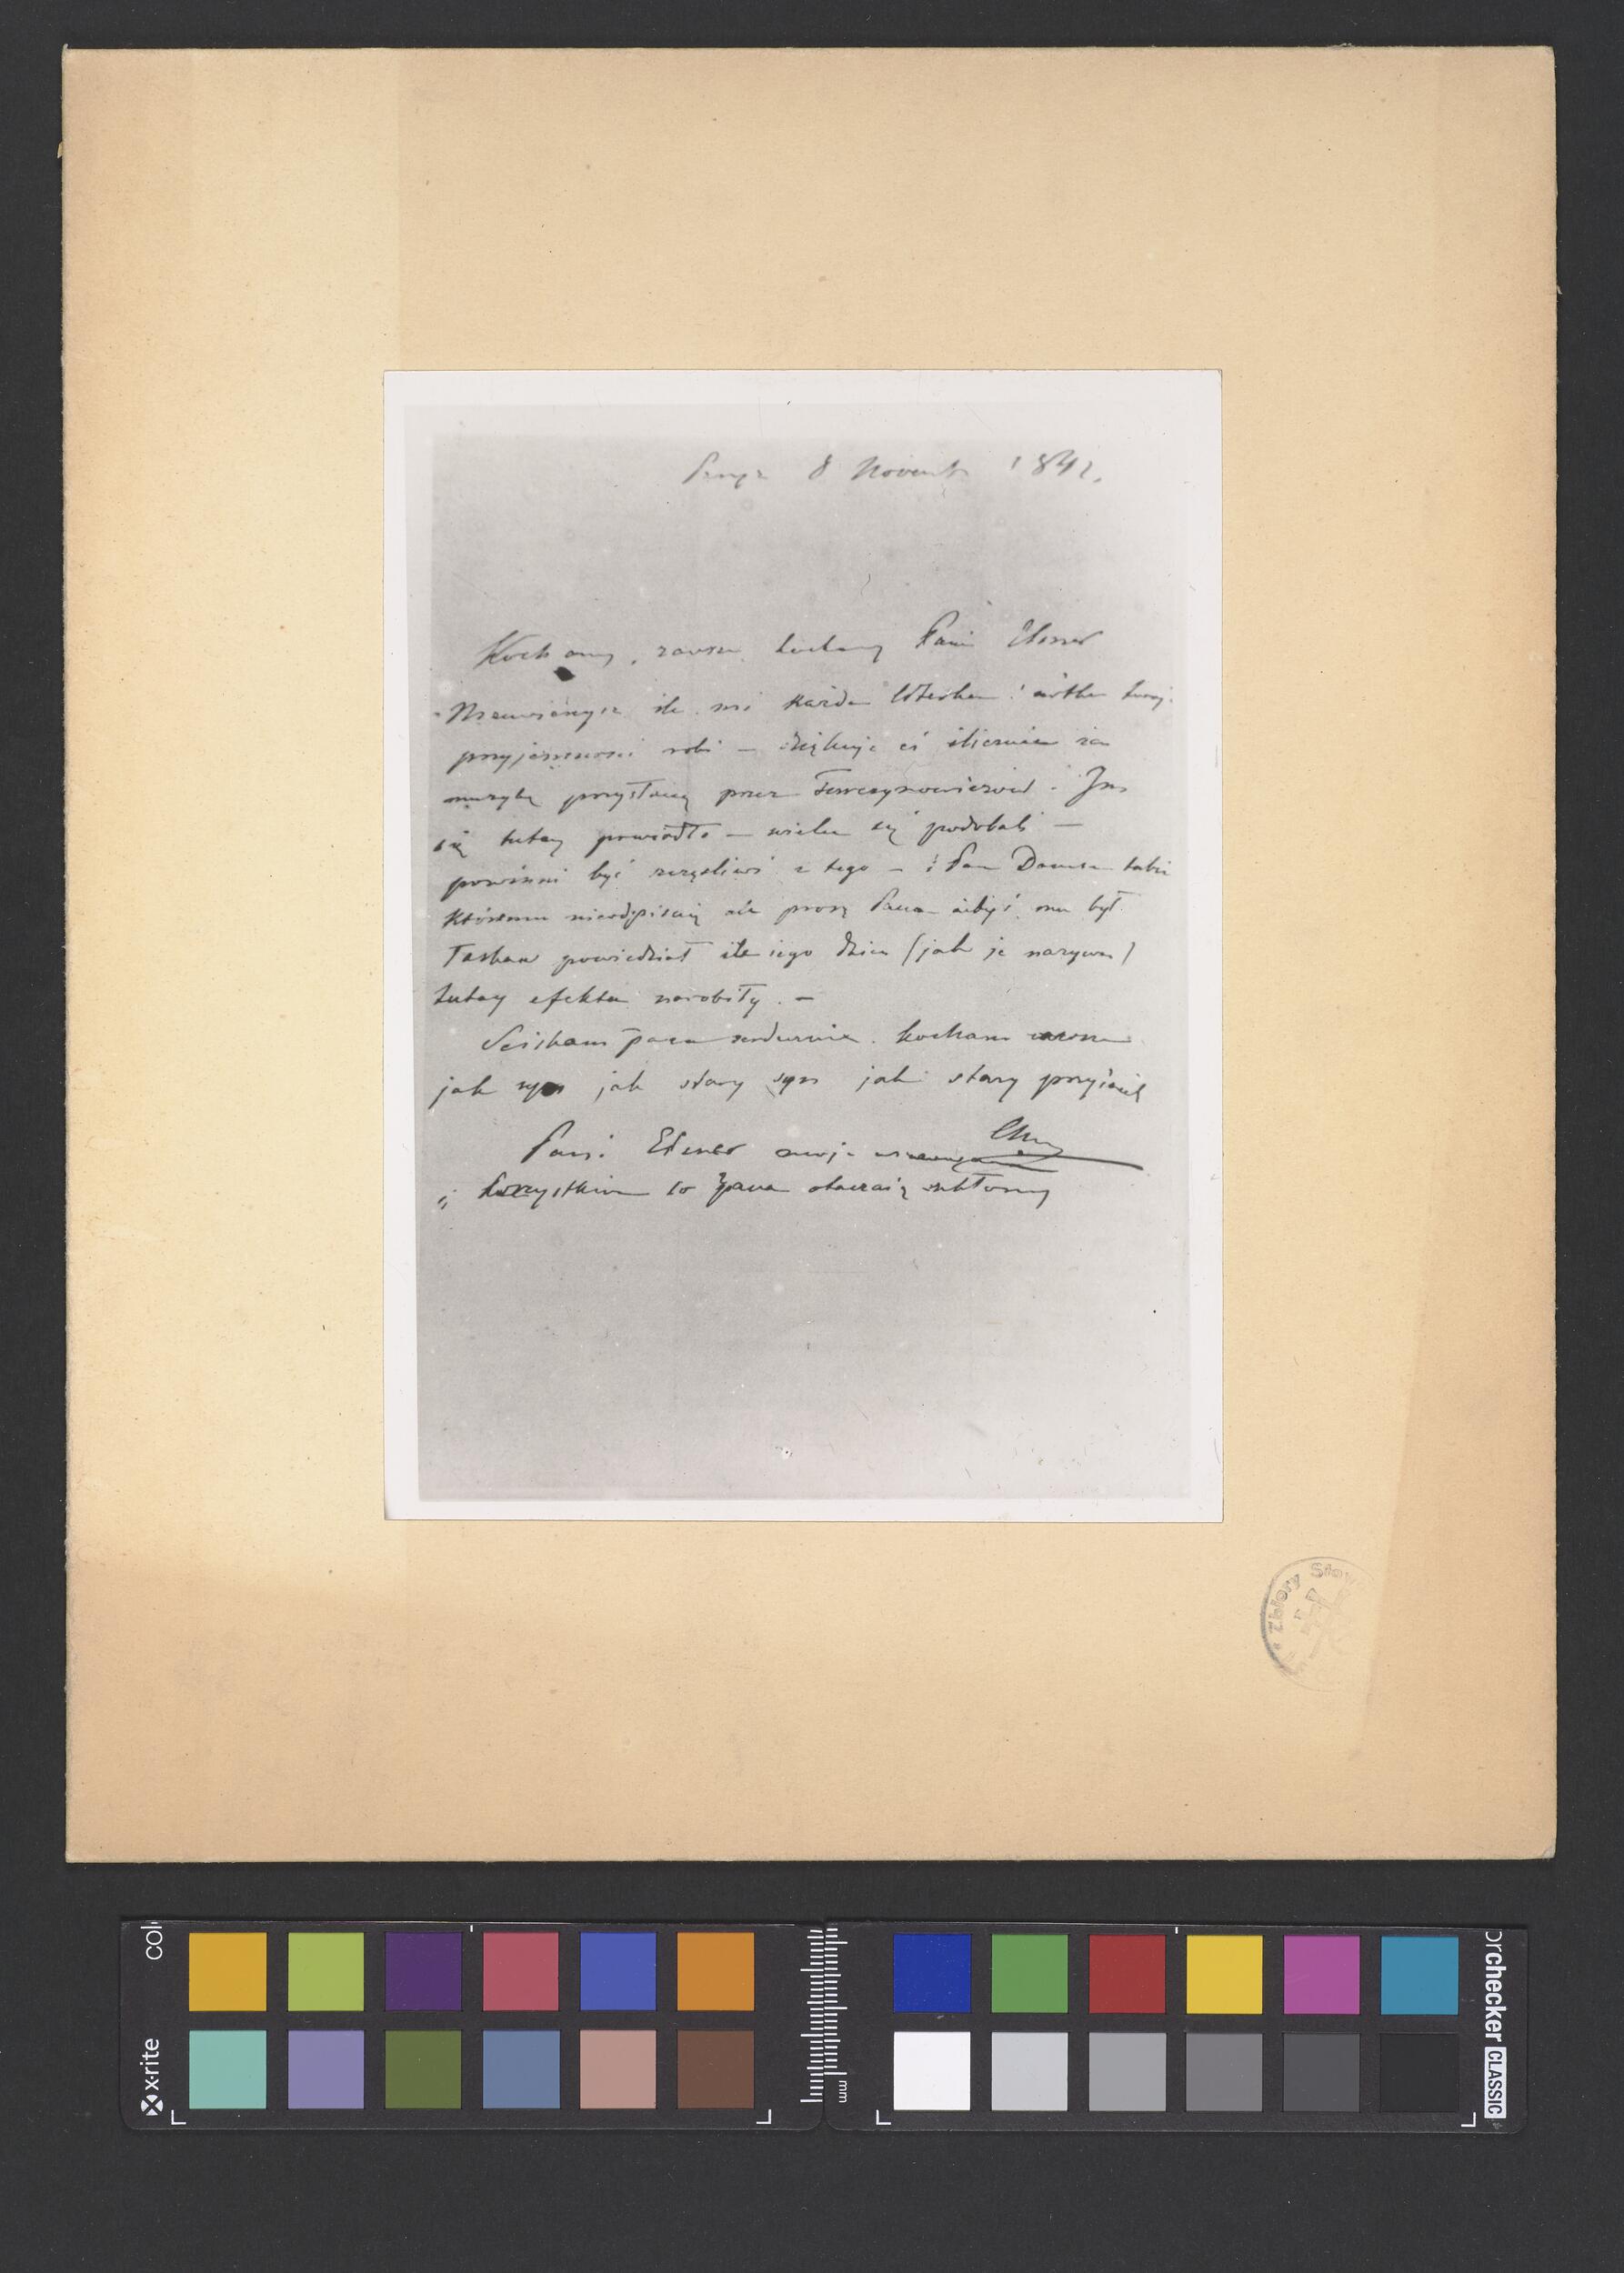 Paryż 8 Novemb 1842.
Kochany, zawsze kochany Panie Elsner
Nieuwierzysz ile mi każda literka i nótka twoja
przyjemności robi — dziękuję ci ślicznie za
muzykę przysłaną przez Turczynowiczów. Im
się tutaj powiodło — wielu się podobali —
powinni być szczęśliwi z tego — i Pan Damse także
któremu nieodpisuię ale proszę Pana ażebyś mu był
łaskaw powiedział ile iego dzieci (jak je nazywa)
tutay efektu narobiły. —
Sciskam pana serdecznie. kocham zawsze
jak syn jak stary syn jak stary przyiaciel
Ch
Pani Elsner moje
i wszystkim co Pana otaczaią ukłony
Zbiory
x-rite
colorchecker CLASSIC
mm